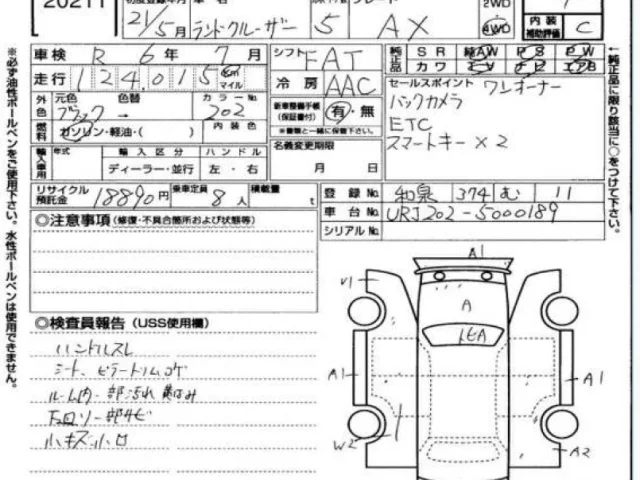 20211
21/5月 ランドクルーザー 5 AX 4WD
内装 補助評価 C
車検 R 6年 7月 シフト FAT 純正品 SR 純AW PS PW
走行 124,015 km マイル 冷房 AAC カワ エアB
セールスポイント ワンオーナー
バックカメラ
ETC
スマートキー×2
外色 元色 ブラック 色替 カラーNo. 202
新車整備手帳(保証書付) 有・無
※書類と一緒に保管下さい。
燃料 ガソリン・軽油・( ) 内装色
名義変更期限 月 日
輸入車用 年式 輸入区分 ハンドル
ディーラー・並行 左・右
リサイクル預託金 18890円 乗車定員 8人 積載量 t
登録No. 和泉 374 む 11
車台No. URJ202-5000189
シリアルNo.
◎注意事項(修復・不具合箇所および状態等)
◎検査員報告(USS使用欄)
ハンドルスレ
ルーム内一部汚れ
下回り一部サビ
小キズ小凹
A1
V1 A
A1 A1
W2 A2
※必ず油性ボールペンをご使用下さい。水性ボールペンは使用できません。
←純正品に限り該当に○をつけて下さい。